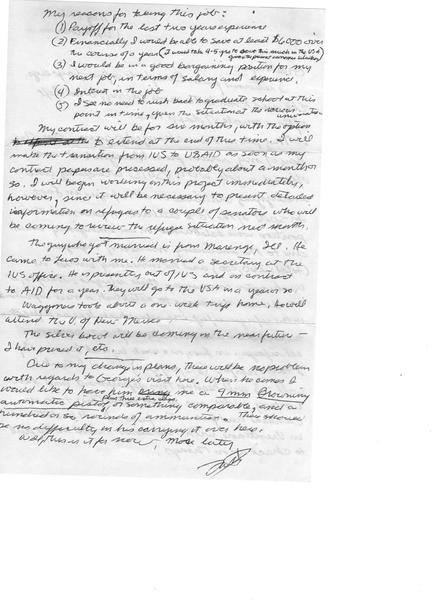 My reasons for taking this job:
(1) Payoff for the last two years experience
(2) Financially I would be able to save at least $6,000 over
the course of a year (it would take 4-5 yrs to save this much in the USA
given the present
(3) I would be in a good bargaining position for my
next job, in terms of salary and experience.
(4) Interest in the job
(5) I see no need to rush back to graduate school at this
point in time, given the situation at the various
universities
My contract will be for six months, with the option
to extend at the end of this time. I will
make the transition from IVS to USAID as soon as my
contract papers are processed, probably about a month or
so. I will begin working on this project immediately,
however, since it will be necessary to present detailed
information on refugees to a couple of senators who will
be coming to review the refugee situation next month.
The guy who got married is from Marengo, Ill. He
came to Laos with me. He married a secretary at the
IVS office. He is presently out of IVS and on contract
to AID for a year. They will go to the USA in a year or so.
Waggoner took about a one week trip home. He will
attend the U. of New Mexico
The silver bowl will be coming in the near future -
I have priced it, etc.
Due to my change in plans, there will be no problem
with regards to George's visit here. When he comes I
would like to have him bring me a 9mm Browning
automatic pistol
or something comparable, and a
hundred or so rounds of ammunition. There should
be no difficulty in his carrying it over here.
Well this is it for now, more later